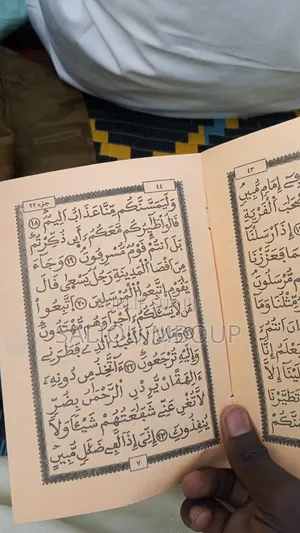 ٤٤ جزء ٢٢
وَلَيَمَسَّنَّكُم مِّنَّا عَذَابٌ اَلِيمٌ ١٨
قَالُوا طَائِرُكُم مَّعَكُمْ أَئِن ذُكِّرْتُم
بَلْ اَنْتُمْ قَوْمٌ مُّسْرِفُونَ ١٩ وَجَاءَ
مِنْ اَقْصَا الْمَدِينَةِ رَجُلٌ يَسْعَىٰ قَالَ
يٰقَوْمِ اتَّبِعُوا الْمُرْسَلِينَ ٢٠ اتَّبِعُوا
مَنْ لَّا يَسْأَلُكُمْ اَجْرًا وَهُمْ مُّهْتَدُونَ
٢١ وَمَا لِيَ لَا اَعْبُدُ الَّذِي فَطَرَنِي
وَاِلَيْهِ تُرْجَعُونَ ٢٢ ءَاَتَّخِذُ مِنْ دُونِهِ
ءَالِهَةً اِنْ يُّرِدْنِ الرَّحْمٰنُ بِضُرٍّ
لَّا تُغْنِ عَنِّي شَفَاعَتُهُمْ شَيْئًا وَّلَا
يُنْقِذُونِ ٢٣ اِنِّي اِذًا لَّفِي ضَلٰلٍ مُّبِينٍ
٧
٤٣
فِي اِمَامٍ مُّبِينٍ
الْقَرْيَةِ
اِذْ اَرْسَلْنَا
فَعَزَّزْنَا
مُّرْسَلُونَ
مِّثْلُنَا وَمَا
اِنْ اَنْتُمْ
يَعْلَمُ اِنَّا
تَطَيَّرْنَا